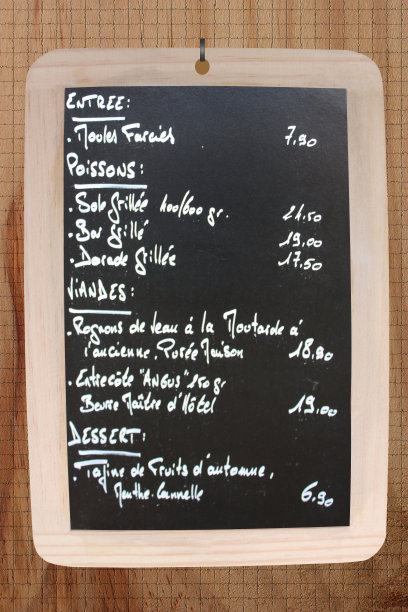 ENTREE:
. Moules Farcies 7,90
POISSONS:
. Sole Grillée 400/600 gr. 24.50
. Bar Grillé 19,00
. Dorade Grillée 17,50
VIANDES:
. Rognons de Veau à la Moutarde à
l'ancienne. Purée Maison 18,90
. Entrecôte "ANGUS" 250 gr
Beurre Maître d'Hôtel 19,00
DESSERT:
. Tajine de Fruits d'automne,
Menthe. Cannelle 6,90